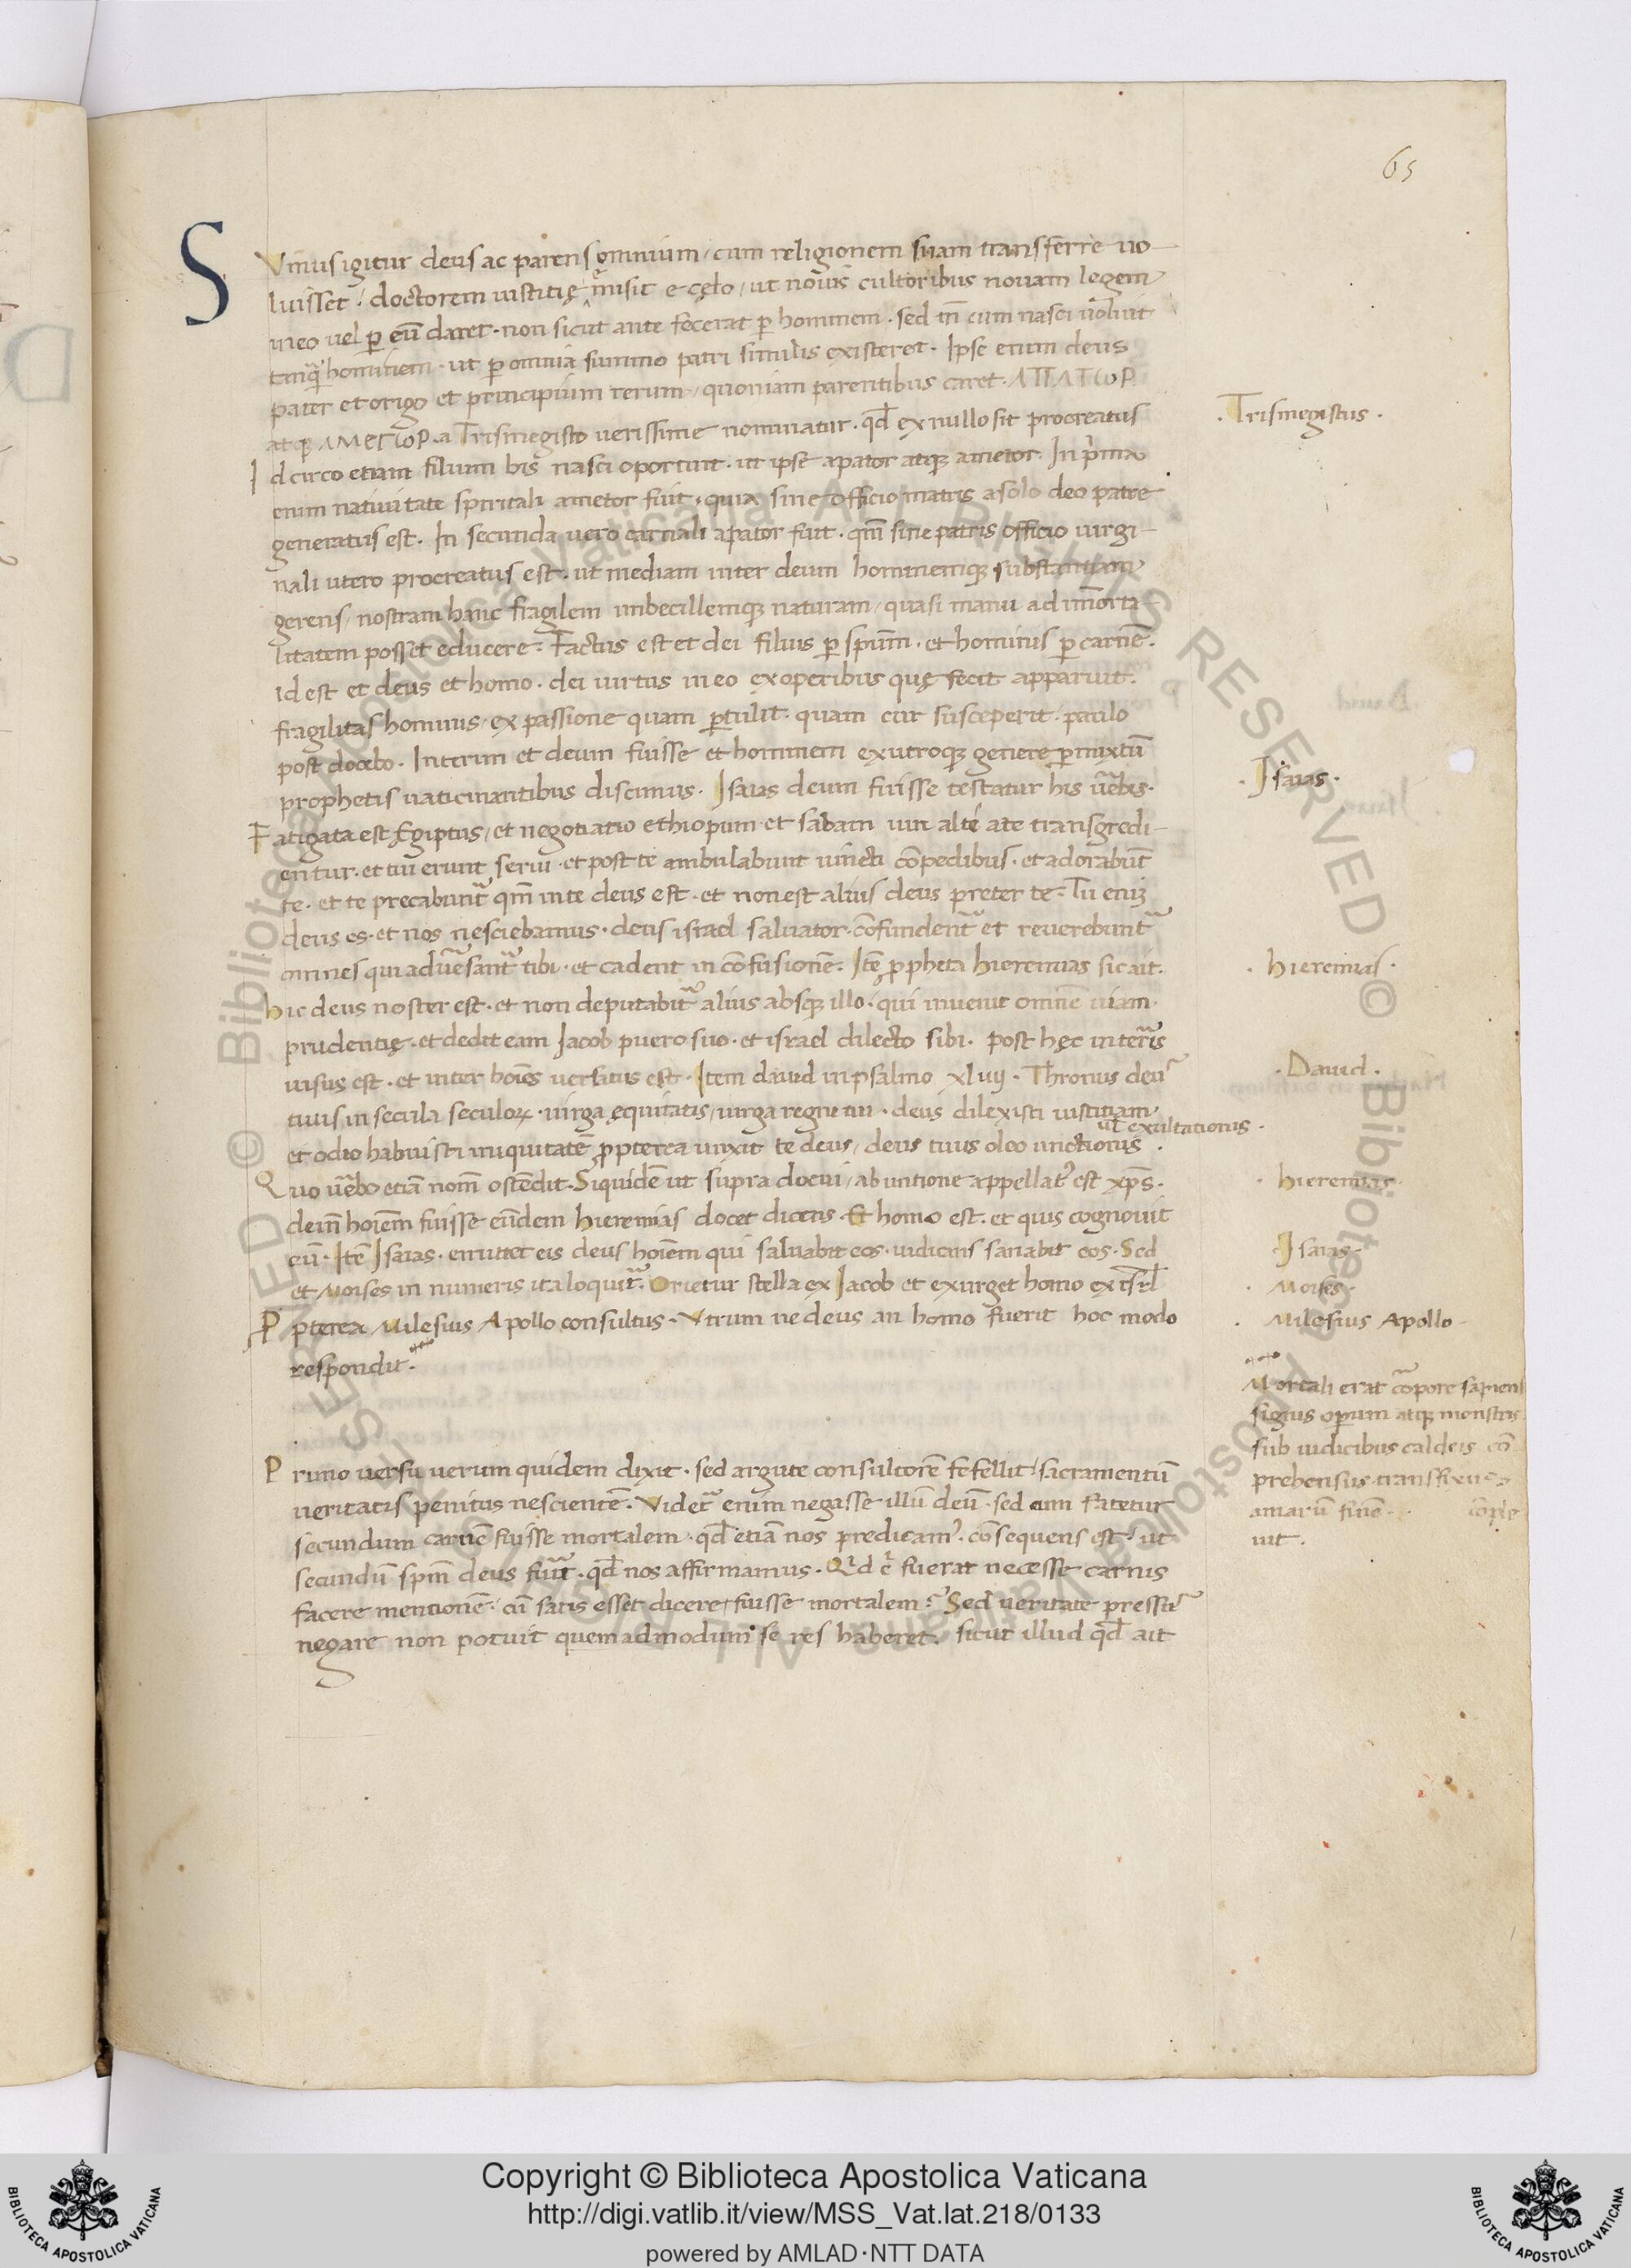 65
SVmus igitur deus ac parens omnium, cum religionem suam transferre uo-
luisset, doctorem iustitię misit e cęlo, ut nouis cultoribus nouam legem
in eo uel ꝑ eū daret. non sicut ante fecerat ꝑ hominem. sed tn̄ eum nasci uoluit
tmq̄ hominem. ut ꝑ omnia summo patri similis existeret. Ipse enim deus
pater et origo et principium rerum, quoniam parentibus caret. ΑΠΑΤωΡ
atqꝫ ΑΜΕΤωΡ. a Trismegisto uerissime nominatur. qđ ex nullo sit procreatus
Trismegistus.
Idcirco etiam filium bis nasci oportuit. ut ipse apator atqꝫ ametor. In p'ma
enim natiuitate spiritali ametor fuit. quia sine officio matris a solo deo patre
generatus est. In secunda uero carnali apator fuit. qm̄ sine patris officio uirgi-
nali utero procreatus est. ut mediam inter deum hominemqꝫ substantiam
gerens, nostram hanc fragilem imbecillemqꝫ naturam, quasi manu ad īmorta-
litatem posset educere. Factus est et dei filius ꝑ spūm. et hominis ꝑ carnē.
id est et deus et homo. dei uirtus in eo ex operibus quę fecit apparuit.
fragilitas hominis, ex passione quam ꝑtulit. quam cur susceperit. paulo
post docebo. Interim et deum fuisse et hominem ex utroqꝫ genere ꝑmixtū
prophetis uaticinantibus discimus. Isaias deum fuisse testatur his ūbis.
.Isaias.
Fatigata est Egiptus, et negotiatio ethiopum et sabain uiri alte ate transgredi-
entur. et tui erunt serui. et post te ambulabunt uincti cōpedibus. et adorabūt
te. et te precabunt̄ qm̄ in te deus est. et non est alius deus preter te. Tu enīꝫ
deus es. et nos nesciebamus. deus israel saluator. cōfundent̄ et reuerebunt̄
omnes qui aduēsant̄ tibi. et cadent in cōfusionē. Itē ꝓpheta hieremias sic ait.
. hieremias.
hic deus noster est. et non deputabit̄ alius absqꝫ illo. qui inuenit omnē uiam
prudentię. et dedit eam Jacob puero suo. et israel dilecto sibi. post hęc in terris
uisus est. et inter hoīes uersatus est. Item dauid in psalmo xliiij. Thronus deus
.Dauid.
tuus in secula seculoꝝ. uirga ęquitatis, uirga regni tui. deus dilexisti iustitiam
et odio habuisti iniquitatē ꝓpterea unxit te deus, deus tuus oleo unctionis.
ul̄ exultationis.
Quo ūbo etiā nom̄ ostēdit. Siquidē ut supra docui, ab untione appellat' est xp̄s.
dein̄ hoīem fuisse eūdem hieremias docet dicens. Et homo est. et quis cognouit
. hieremias.
eū. Itē Isaias. et mittet eis deus hoīem qui saluabit eos. iudicans sanabit eos. Sed
.Isaias.
et Moises in numeris ita loquit̄. Orietur stella ex Jacob et exurget homo ex isrl̄
. Moises.
Ꝓpterea Milesius Apollo consultus. Vtrum ne deus an homo fuerit hoc modo
. Milesius Apollo.
respondit.
Mortali erat cōpore sapiens
signis operum atqꝫ monstris
sub iudicibus caldeis cō
prehensus transfixus
amarū finē. cōple
uit.
Primo uersu uerum quidem dixit. sed argute consultorē fefellit, sacramentū
ueritatis penitus nescientē. Videt̄ enim negasse illū deū. sed cum fatetur
secundum carnē fuisse mortalem. qđ etiā nos predicam'. cōsequens est, ut
secundū spm̄ deus fuīt. qđ nos affirmamus. Qd ē fuerat necesse carnis
facere mentionē. cū satis esset dicere, fuisse mortalem? Sed ueritate pressus
negare non potuit quemadmodum se res haberet. sicut illud qđ ait
© Biblioteca Apostolica Vaticana ALL RIGHTS RESERVED
Copyright © Biblioteca Apostolica Vaticana
http://digi.vatlib.it/view/MSS_Vat.lat.218/0133
powered by AMLAD·NTT DATA
BIBLIOTECA APOSTOLICA VATICANA
BIBLIOTECA APOSTOLICA VATICANA